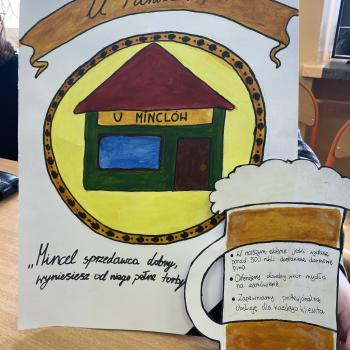 U
U MINCLÓW
„Mincel sprzedawca dobry,
wyniesiesz od niego pełne torby
• W naszym sklepie jeśli wydasz
ponad 500 rubli dostaniesz darmowe
piwo.
• Oferujemy dowolny wzór mydła
na zamówienie.
• Zapewniamy profesjonalną
obsługę dla każdego klienta